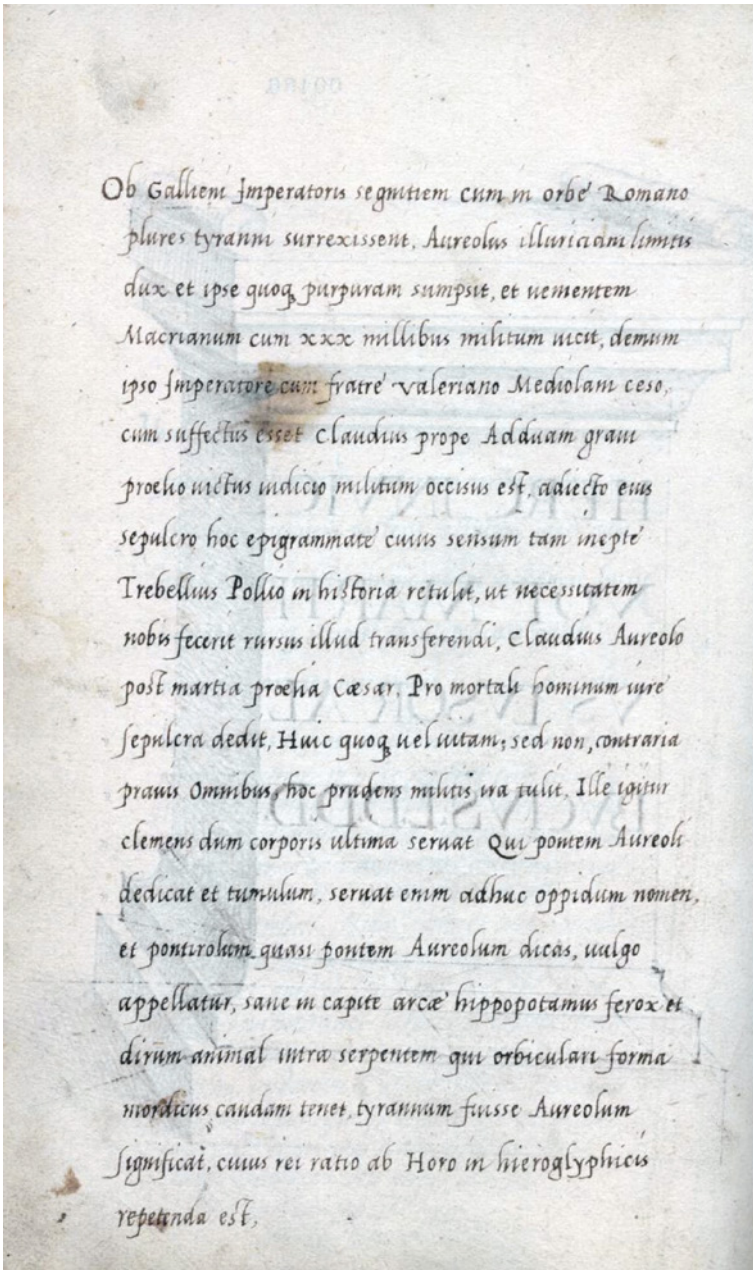 Ob Gallieni Imperatoris segnitiem cum in orbe Romano
plures tyranni surrexissent, Aureolus illuriciani limitis
dux et ipse quoqꝫ purpuram sumpsit, et uementem
Macrianum cum xxx millibus militum uicit, demum
ipso Imperatore cum fratre Valeriano Mediolani ceso,
cum suffectus esset Claudius prope Adduam graui
proelio uictus iudicio militum occisus est, adiecto eius
sepulcro hoc epigrammate cuius sensum tam inepte
Trebellius Pollio in historia retulit, ut necessitatem
nobis fecerit rursus illud transferendi, Claudius Aureolo
post martia proelia Cæsar. Pro mortali hominum iure
sepulcra dedit, Huic quoqꝫ uel uitam; sed non, contraria
prauis Omnibus, hoc prudens militis ira tulit. Ille igitur
clemens dum corporis ultima seruat Qui pontem Aureoli
dedicat et tumulum, seruat enim adhuc oppidum nomen,
et pontirolum quasi pontem Aureolum dicas, uulgo
appellatur, sane in capite arcæ hippopotamus ferox et
dirum animal intra serpentem qui orbiculari forma
mordicus caudam tenet, tyrannum fuisse Aureolum
significat, cuius rei ratio ab Horo in hieroglyphicis
repetenda est,